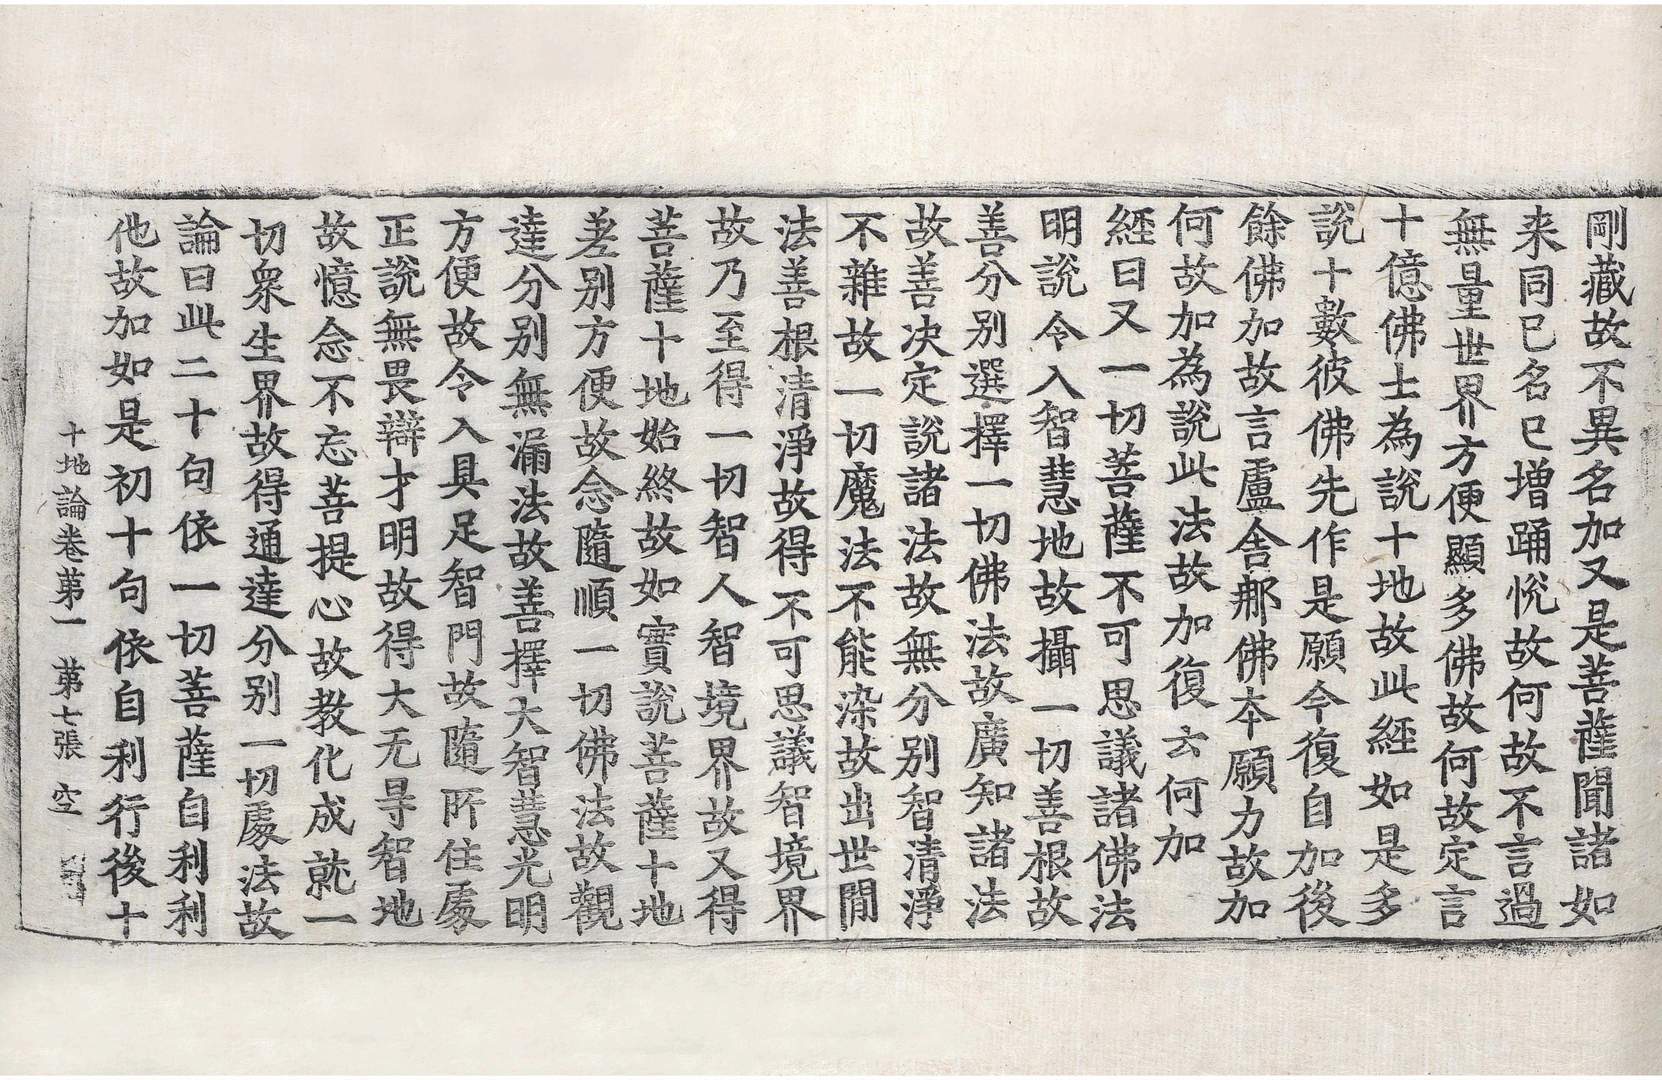 剛藏故不異名加又是菩薩聞諸如
来同已名已增踊恱故何故不言過
無量世界方便顯多佛故何故㝎言
十億佛土為說十地故此經如是多
說十數彼佛先作是願今復自加後
餘佛加故言盧舍那佛夲願力故加
何故加為說此法故加復云何加
經曰又一切菩薩不可思議諸佛法
明說令入智慧地故攝一切善根故
善分别選擇一切佛法故廣知諸法
故善决定說諸法故無分别智清淨
不雜故一切魔法不能染故出世閒
法善根清淨故得不可思議智境界
故乃至得一切智人智境界故又得
菩薩十地始終故如實說菩薩十地
差别方便故念隨順一切佛法故觀
達分别無漏法故善擇大智慧光明
方便故令入具足智門故隨所住處
正說無畏辯才明故得大无㝵智地
故憶念不忘菩提心故教化成就一
切衆生界故得通達分别一切處法故
論曰此二十句依一切菩薩自利利
他故加如是初十句依自利行後十
十地論卷苐一 苐七張 空